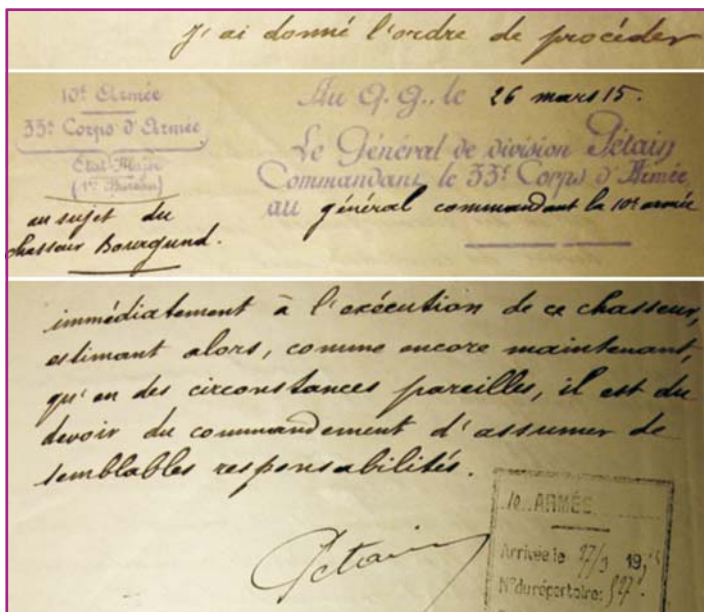 j'ai donné l'ordre de procéder
10e Armée
33e Corps d'Armée
État-Major
(1er Bureau)
au sujet du
chasseur Bourgund.
Au Q.G., le 26 mars 15.
Le Général de division Pétain
Commandant le 33e Corps d'Armée
au général commandant la 10e armée
immédiatement à l'exécution de ce chasseur,
estimant alors, comme encore maintenant,
qu'en des circonstances pareilles, il est du
devoir du commandement d'assumer de
semblables responsabilités.
Petain
10e ARMÉE
Arrivée le 27/3 1915
N° du répertoire: 527